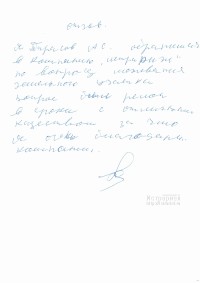 отзыв.
Я Тарасов А.С. обратился
в компанию
по вопросу межевания
земельного участка
вопрос был решен
в сроки с отличным
качеством за что
я очень благодарен
компании.